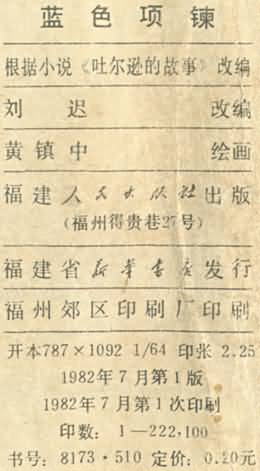 蓝色项鍊
根据小说《吐尔逊的故事》改编
刘迟 改编
黄镇中 绘画
福建人民出版社出版
(福州得贵巷27号)
福建省新华书店发行
福州郊区印刷厂印刷
开本787×1092 1/64 印张 2.25
1982年7月第1版
1982年7月第1次印刷
印数: 1—222,100
书号: 8173·510 定价: 0.20元